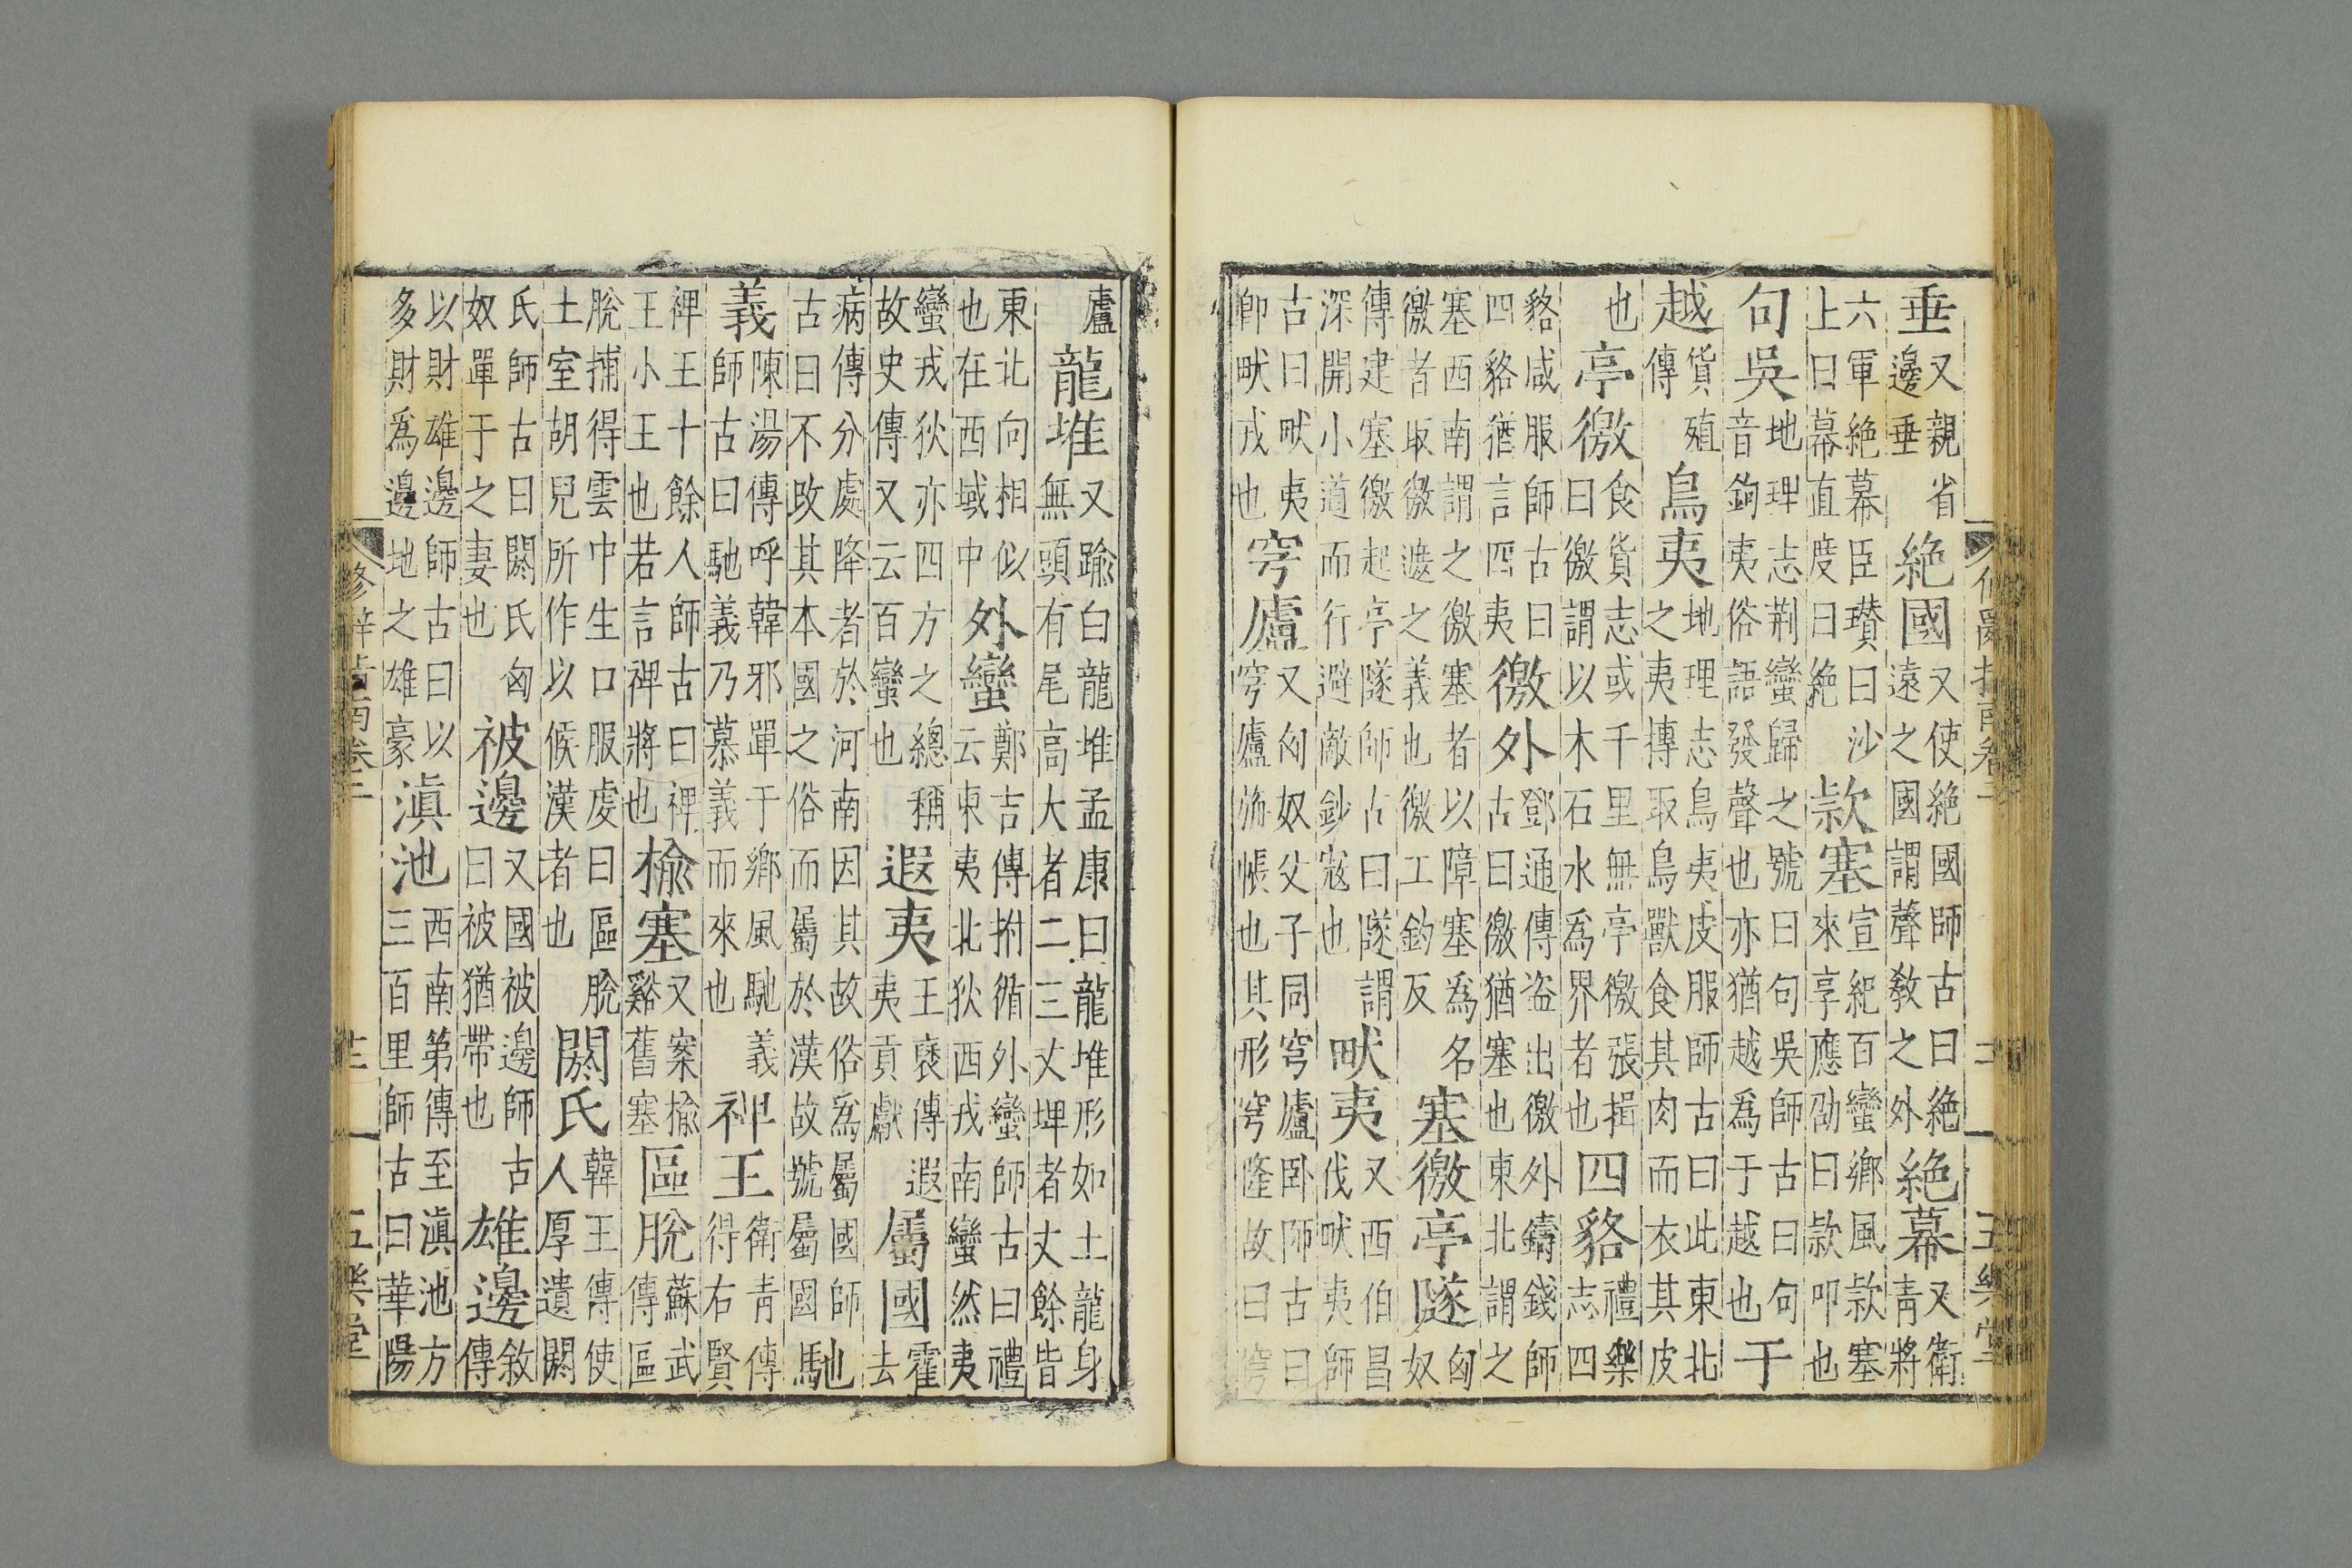 垂又親省邊垂絕國又使絕國師古曰絕遠之國謂聲教之外絕幕又衛青將
六軍絕幕臣瓚曰沙上曰幕直度曰絕款塞宣紀百蠻鄉風款塞來享應劭曰款叩也
句吳地理志荆蠻歸之號曰句吳師古曰句音鉤夷俗語發聲也亦猶越為于越也于
越貨殖傳鳥夷地理志鳥夷皮服師古曰此東北之夷摶取鳥獸食其肉而衣其皮
也亭徼食貨志或千里無亭徼張揖曰徼謂以木石水為界者也四貉禮樂志四
貉咸服師古曰四貉猶言四夷徼外鄧通傳盜出徼外鑄錢師古曰徼猶塞也東北謂之
塞西南謂之徼塞者以障塞為名徼者取徼遮之義也徼工釣反塞徼亭隧匈奴
傳建塞徼起亭隧師古曰隧謂深開小道而行避敵鈔寇也畎夷又西伯昌伐畎夷師
古曰畎夷卽畎戎也穹廬又匈奴父子同穹廬卧師古曰穹廬旃帳也其形穹隆故曰穹
廬龍堆又踰白龍堆孟康曰龍堆形如土龍身無頭有尾高大者二三丈埤者丈餘皆
東北向相似也在西域中外蠻鄭吉傳拊循外蠻師古曰禮云東夷北狄西戎南蠻然夷
蠻戎狄亦四方之總稱故史傳又云百蠻也遐夷王襃傳遐夷貢獻屬國霍去
病傳分處降者於河南因其故俗為屬國師古曰不改其本國之俗而屬於漢故號屬國馳
義陳湯傳呼韓邪單于鄉風馳義師古曰馳義乃慕義義而來也裨王衛青傳得右賢
裨王十餘人師古曰裨王小王也若言裨將也榆塞又案榆谿舊塞區脫蘇武傳區
脫捕得雲中生口服虔曰區脫土室胡兒所作以候漢者也閼氏韓王傳使人厚遺閼
氏師古曰閼氏匈奴單于之妻也被邊又國被邊師古曰被猶帶也雄邊敘傳
以財雄邊師古曰以多財為邊地之雄豪滇池西南第傳至滇池方三百里師古曰華陽
修辭指南卷二 五樂堂